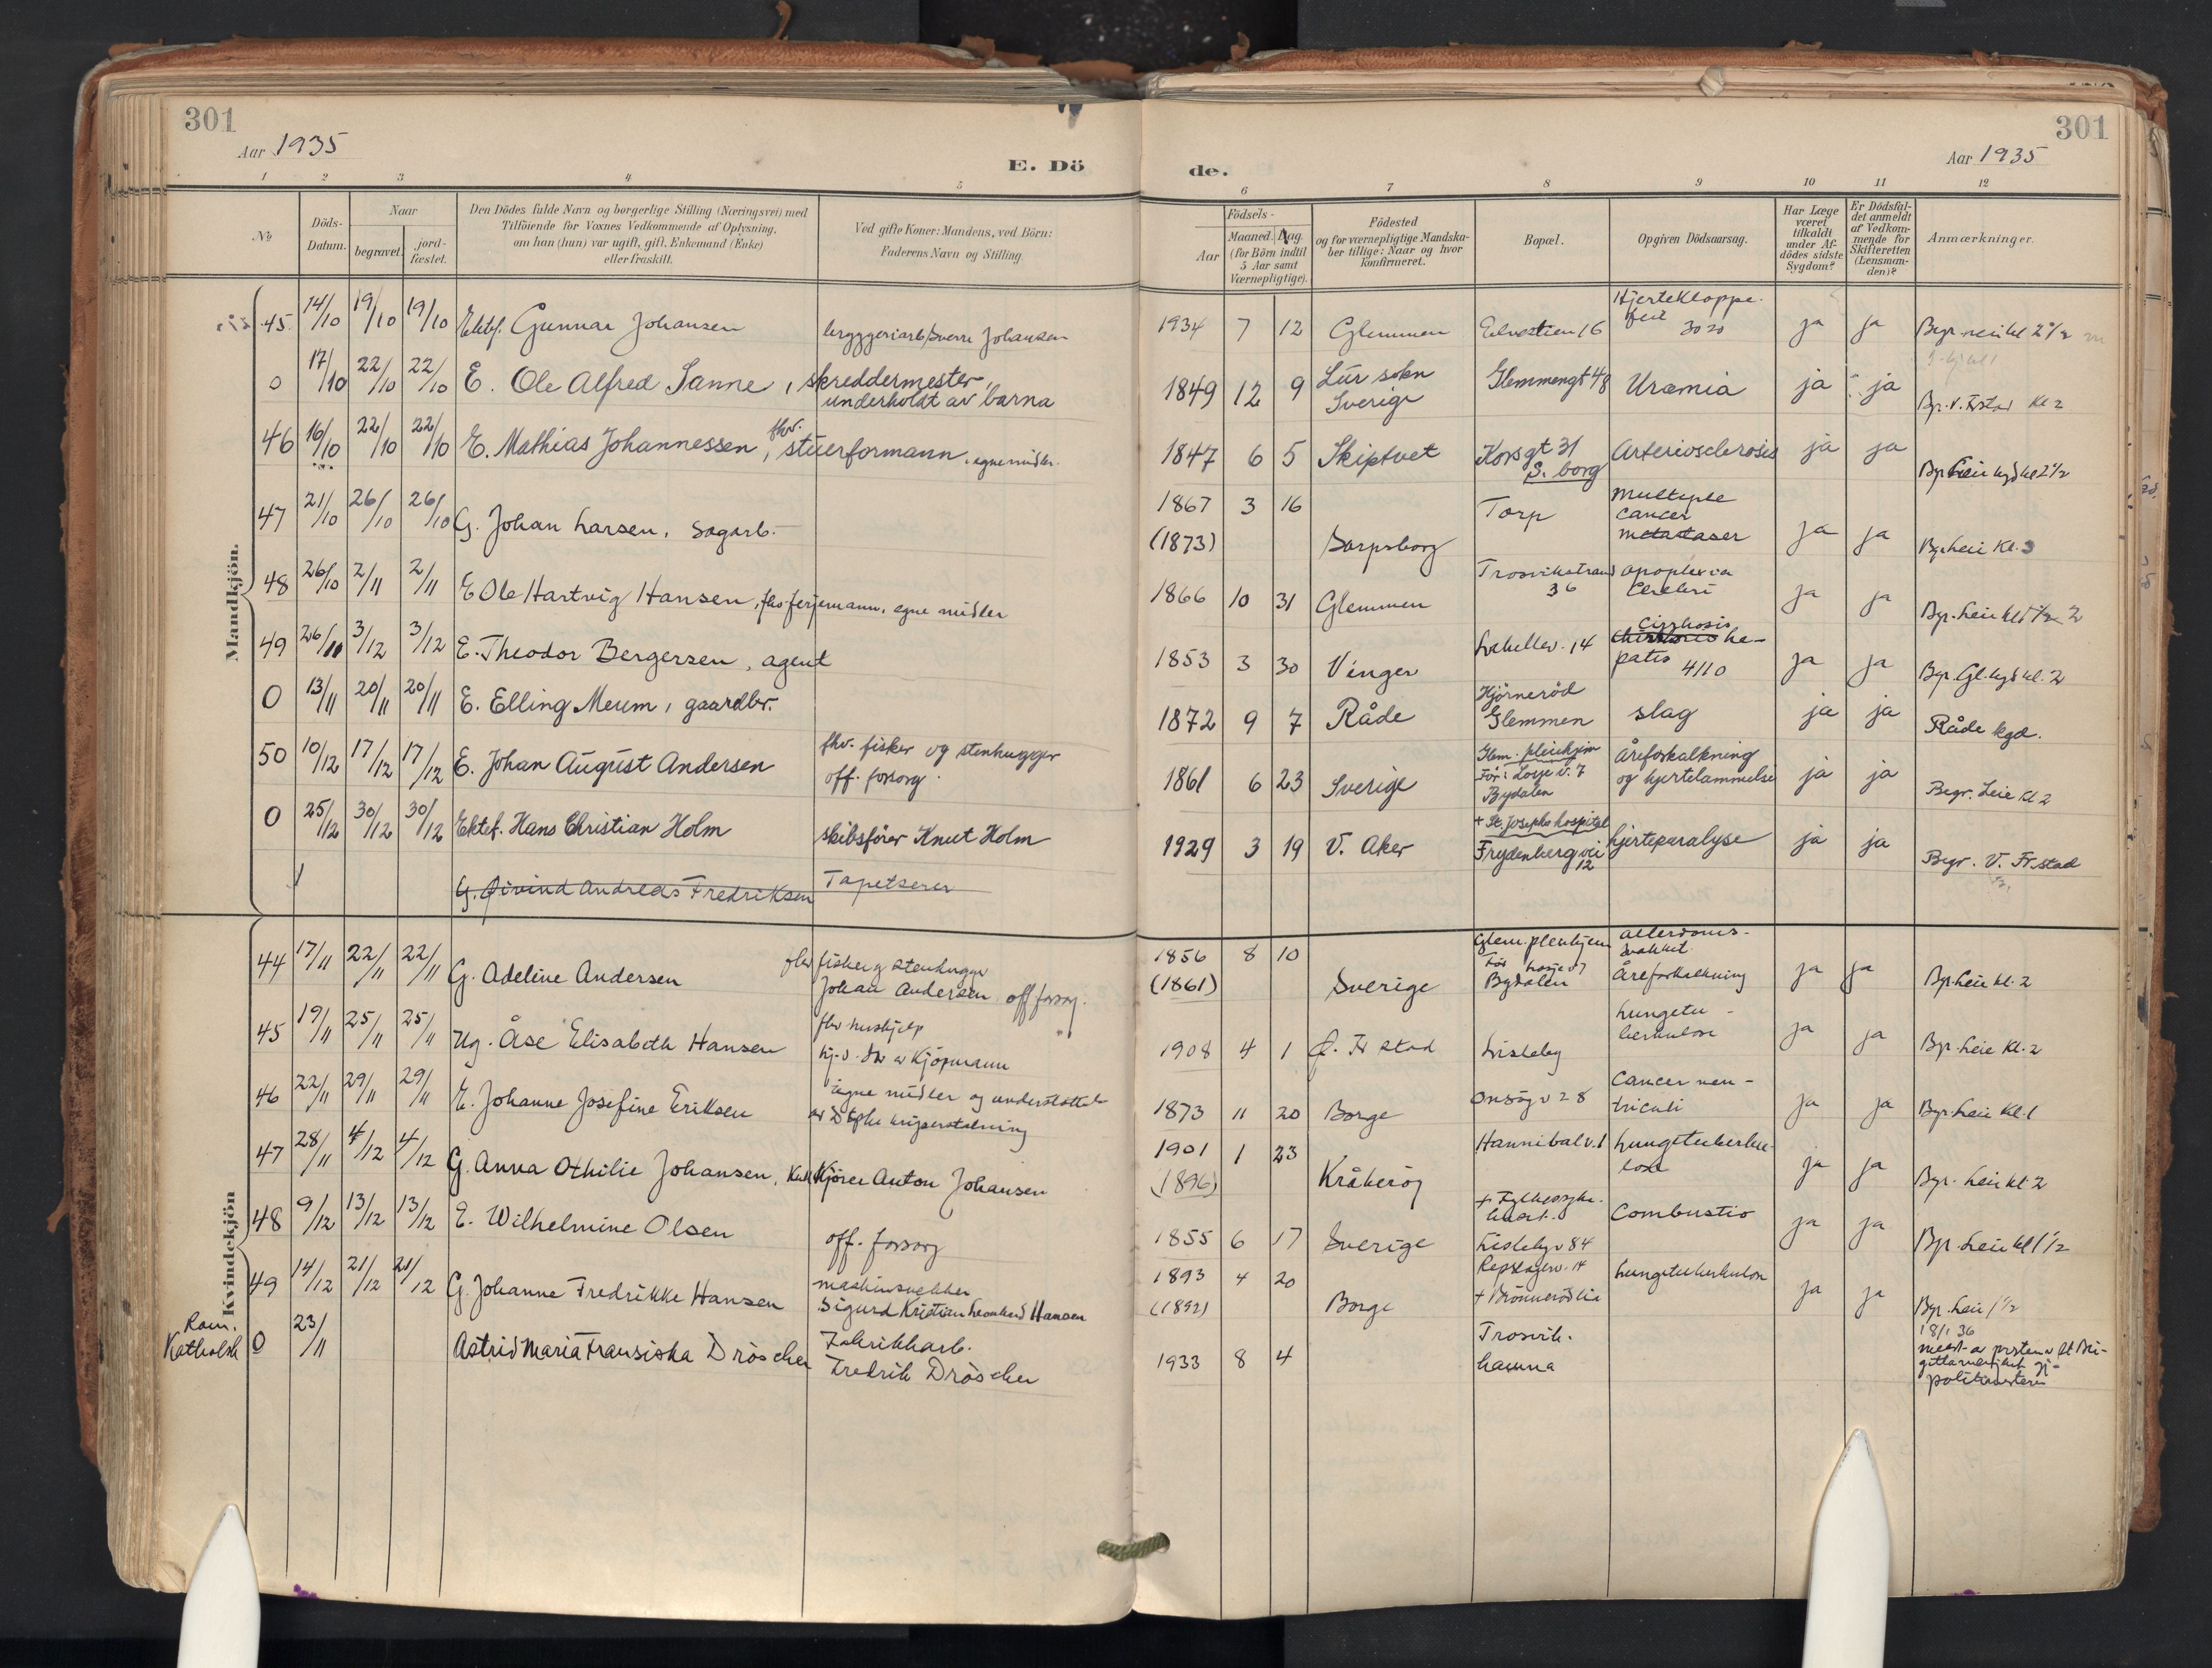 301
Aar 1935
E. Dö
1 2 3 4 5
No
Döds-
Datum.
Naar
begravet.
jord-
fæstet.
Den Dödes fulde Navn og borgerlige Stilling (Næringsvei) med
Tilföiende for Voxnes Vedkommende af Oplysning,
om han (hun) var ugift, gift, Enkemand (Enke)
eller fraskilt.
Ved gifte Koner: Mandens, ved Börn:
Faderens Navn og Stilling.
Mandkjön.
45 14/10 19/10 19/10 Ektef. Gunnar Johansen bryggeriarb. Sverre Johansen
0 17/10 22/10 22/10 E. Ole Alfred Sanne, skreddermester,
underholdt av barna
46 16/10 22/10 22/10 E. Mathias Johannessen, fhv. stuerformann, egne midler.
47 21/10 26/10 26/10 G. Johan Larsen, sagarb.
48 26/10 2/11 2/11 E Ole Hartvig Hansen, fhv ferjemann, egne midler
49 26/11 3/12 3/12 E. Theodor Bergersen, agent
0 13/11 20/11 20/11 E. Elling Meum, gaardbr.
50 10/12 17/12 17/12 E. Johan August Andersen fhv. fisker og stenhugger
off. forsorg.
0 25/12 30/12 30/12 Ektef. Hans Christian Holm skibsförer Knut Holm
G. Øivind Andreas Fredriksen Tapetserer
Kvindekjön
44 17/11 22/11 22/11 G. Adeline Andersen fhv fisker og stenhugger
Johan Andersen off forsorg.
45 19/11 25/11 25/11 Ug. Åse Elisabeth Hansen fhv. hushjelp
hj. v. D av Kjöpmann
46 22/11 29/11 29/11 E. Johanne Josefine Eriksen Egne midler og understöttelse
47 28/11 4/12 4/12 G. Anna Othilie Johansen, Kjörer Anton Johansen
48 9/12 13/12 13/12 E. Wilhelmine Olsen off. forsorg
49 14/12 21/12 21/12 G. Johanne Fredrikke Hansen
Sigurd Kristian Leonhard Hansen
Rom.
Katholsk 0 23/11 Astrid Maria Fransiska Dröscher Fabrikkarb.
Fredrik Dröscher
301
Aar 1935
de.
6 7 8 9 10 11 12
Födsels-
Aar
Maaned. Dag.
(for Börn indtil
5 Aar samt
Værnepligtige).
Födested
og for værnepligtige Mandska-
ber tillige: Naar og hvor
konfirmeret.
Bopæl.
Opgiven Dödsaarsag.
Har Læge
været
tilkaldt
under Af-
dödes sidste
Sygdom?
Er Dödsfal-
det anmeldt
af Vedkom-
mende for
Skifteretten
(Lensman-
den)?
Anmærkninger.
1934 7 12 Glemmen Hjertekloppe-
feil ja ja
1849 12 9 Lur sokn
Sverige Glemmengt 48 Uræmia ja ja Bgr. V. Frstad kl 2
1847 6 5 Skiptvet Korsgt 31
S. borg Arteriosclerosis ja ja
1867 3 16
(1873) Sarpsborg Torp Multiple
cancer
metastaser ja ja Bgr Leie Kl. 3
1866 10 31 Glemmen Trosvikstrand
36 apoplexia
Cerebri ja ja
1853 3 30 Vinger Labellev. 14 Cirrhosis
he-
patis 4110 ja ja Bgr. Gl. kgd kl. 2
1872 9 7 Råde Hjörneröd
Glemmen slag ja ja Råde kgd.
1861 6 23 Sverige Glem. pleiehjem
För: Losje v. 7
Bydalen Åreforkalkning
og hjertelammelse ja ja Begr. Leie Kl 2
1929 3 19 V. Aker + St. Josephs hospital
Frydenbergvei
12 hjerteparalyse ja ja Begr. V. Fr.stad
1856 8 10
(1861) Sverige Glem. pleiehjem
För Losje v 7
Bydalen alderdoms-
svakhet
Åreforkalkning ja ja Bgr. Leie kl. 2
1908 4 1 Ö. Fr stad Lisleby Lungetu-
berkulose ja ja Bgr. Leie Kl. 2
1873 11 20 Borge Onsöyv 28 Cancer ven-
triculi ja ja Bgr. Leie Kl. 1
1901 1 23
(1896) Kråkeröy Hannibalv. 1 Lungetuberku-
lose ja ja Bgr. Leie kl 2
1855 6 17 Sverige + Fylkessyke-
huset.
Lislebyv 84 Combustio ja ja Bgr. Leie kl 1 1/2
1893 4 20
(1892) Borge Repslagerv. 14
+ Brönnerödlia Lungetuberkulose ja ja Bgr. Leie 1 1/2
1933 8 4 Trosvik.
havna 18/1 36